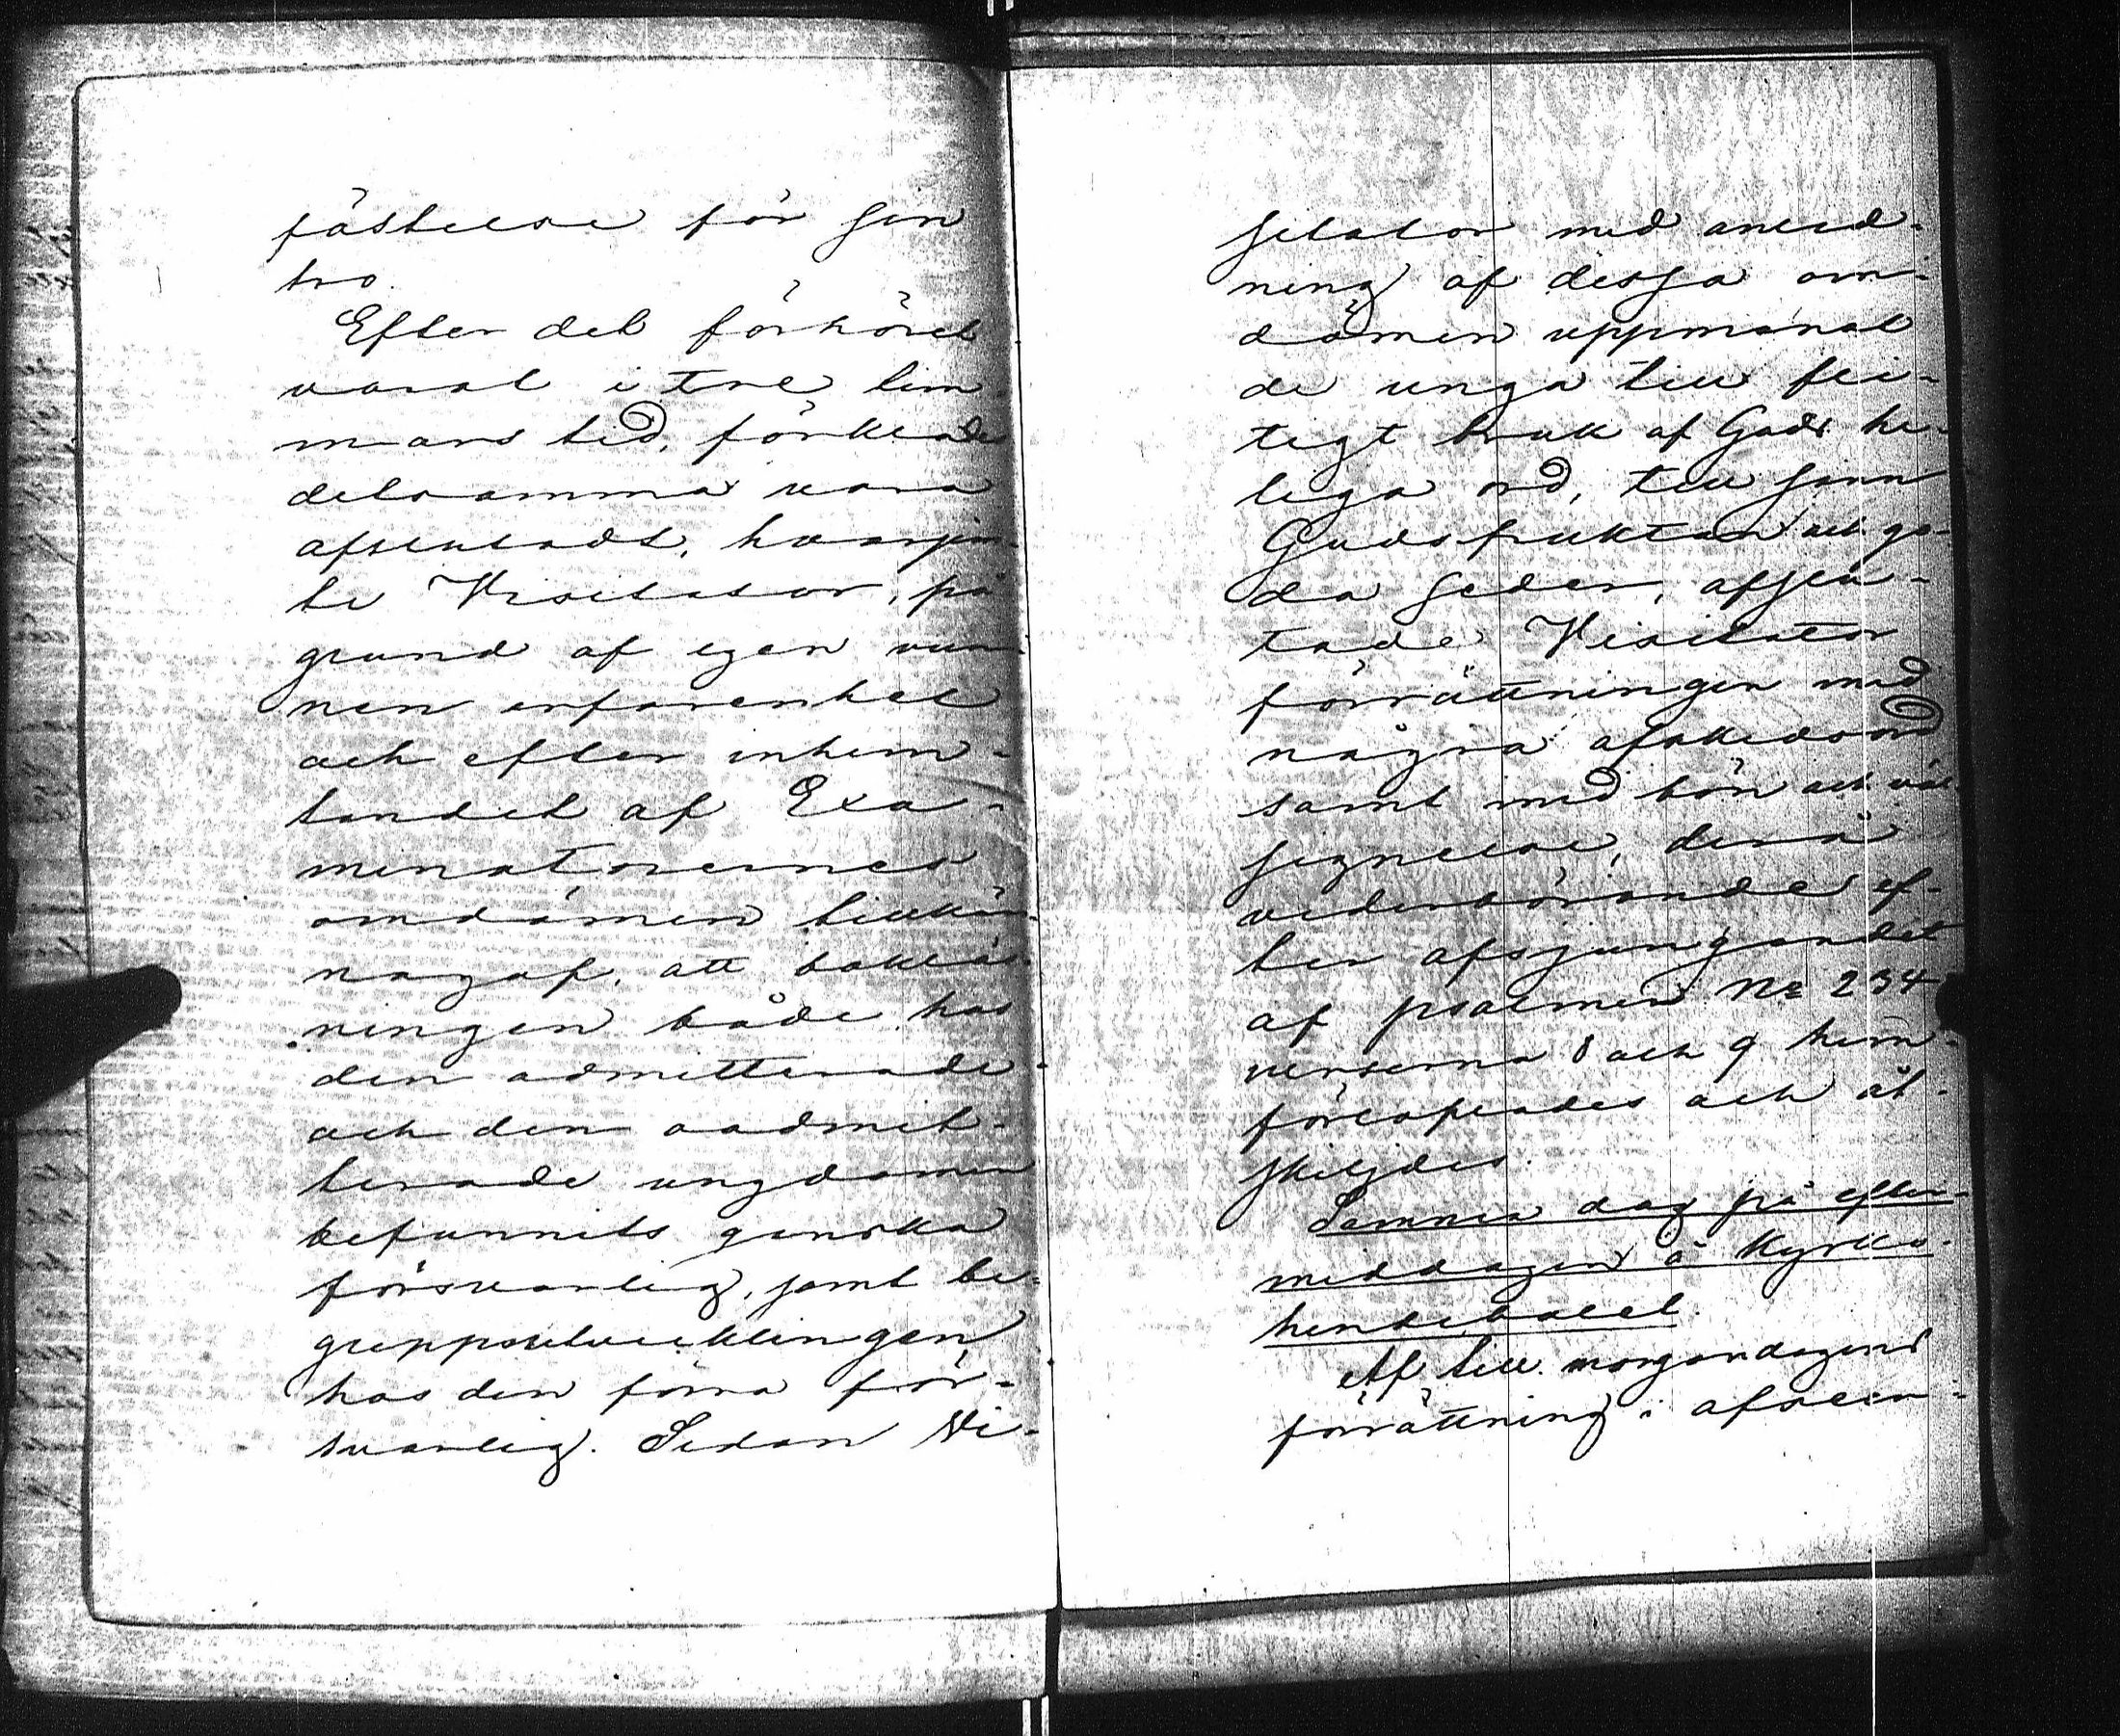 fästelse för sin
tro.
Efter det förhöret
varat i tre tim-
mars tid, förklarades
detsamma vara
afslutadt, hvarjem-
te Visitator, på
grund af egen vun-
nen erfarenhet
och efter inhem-
tandet af Exa-
minatorernes
omdömen tillkän-
nagaf, att boklä-
ningen både hos
den admitterade
och den oadmit-
terade ungdomen
befunnits ganska
försvarlig, samt be-
greppsutvecklingen
hos den förra för-
svarlig. Sedan Vi-
sitator med anled-
ning af dessa om-
dömen uppmanat
de unga till fli-
tigt bruk af Guds he-
liga ord, till sann
Gudsfruktan och go-
da seder, afslu-
tade Visitator
förrättningen med
några afskedsord
samt med bön och väl-
signelse, derå
vederbörande ef-
ter afsjungandet
af psalmen No 234
verserna 8 och 9 hem-
förlofvades och åt-
skiljdes.
Samma dag på efter-
middagen å Kyrko-
herdebolet.
Af till morgondagens
förrättning i afseen-